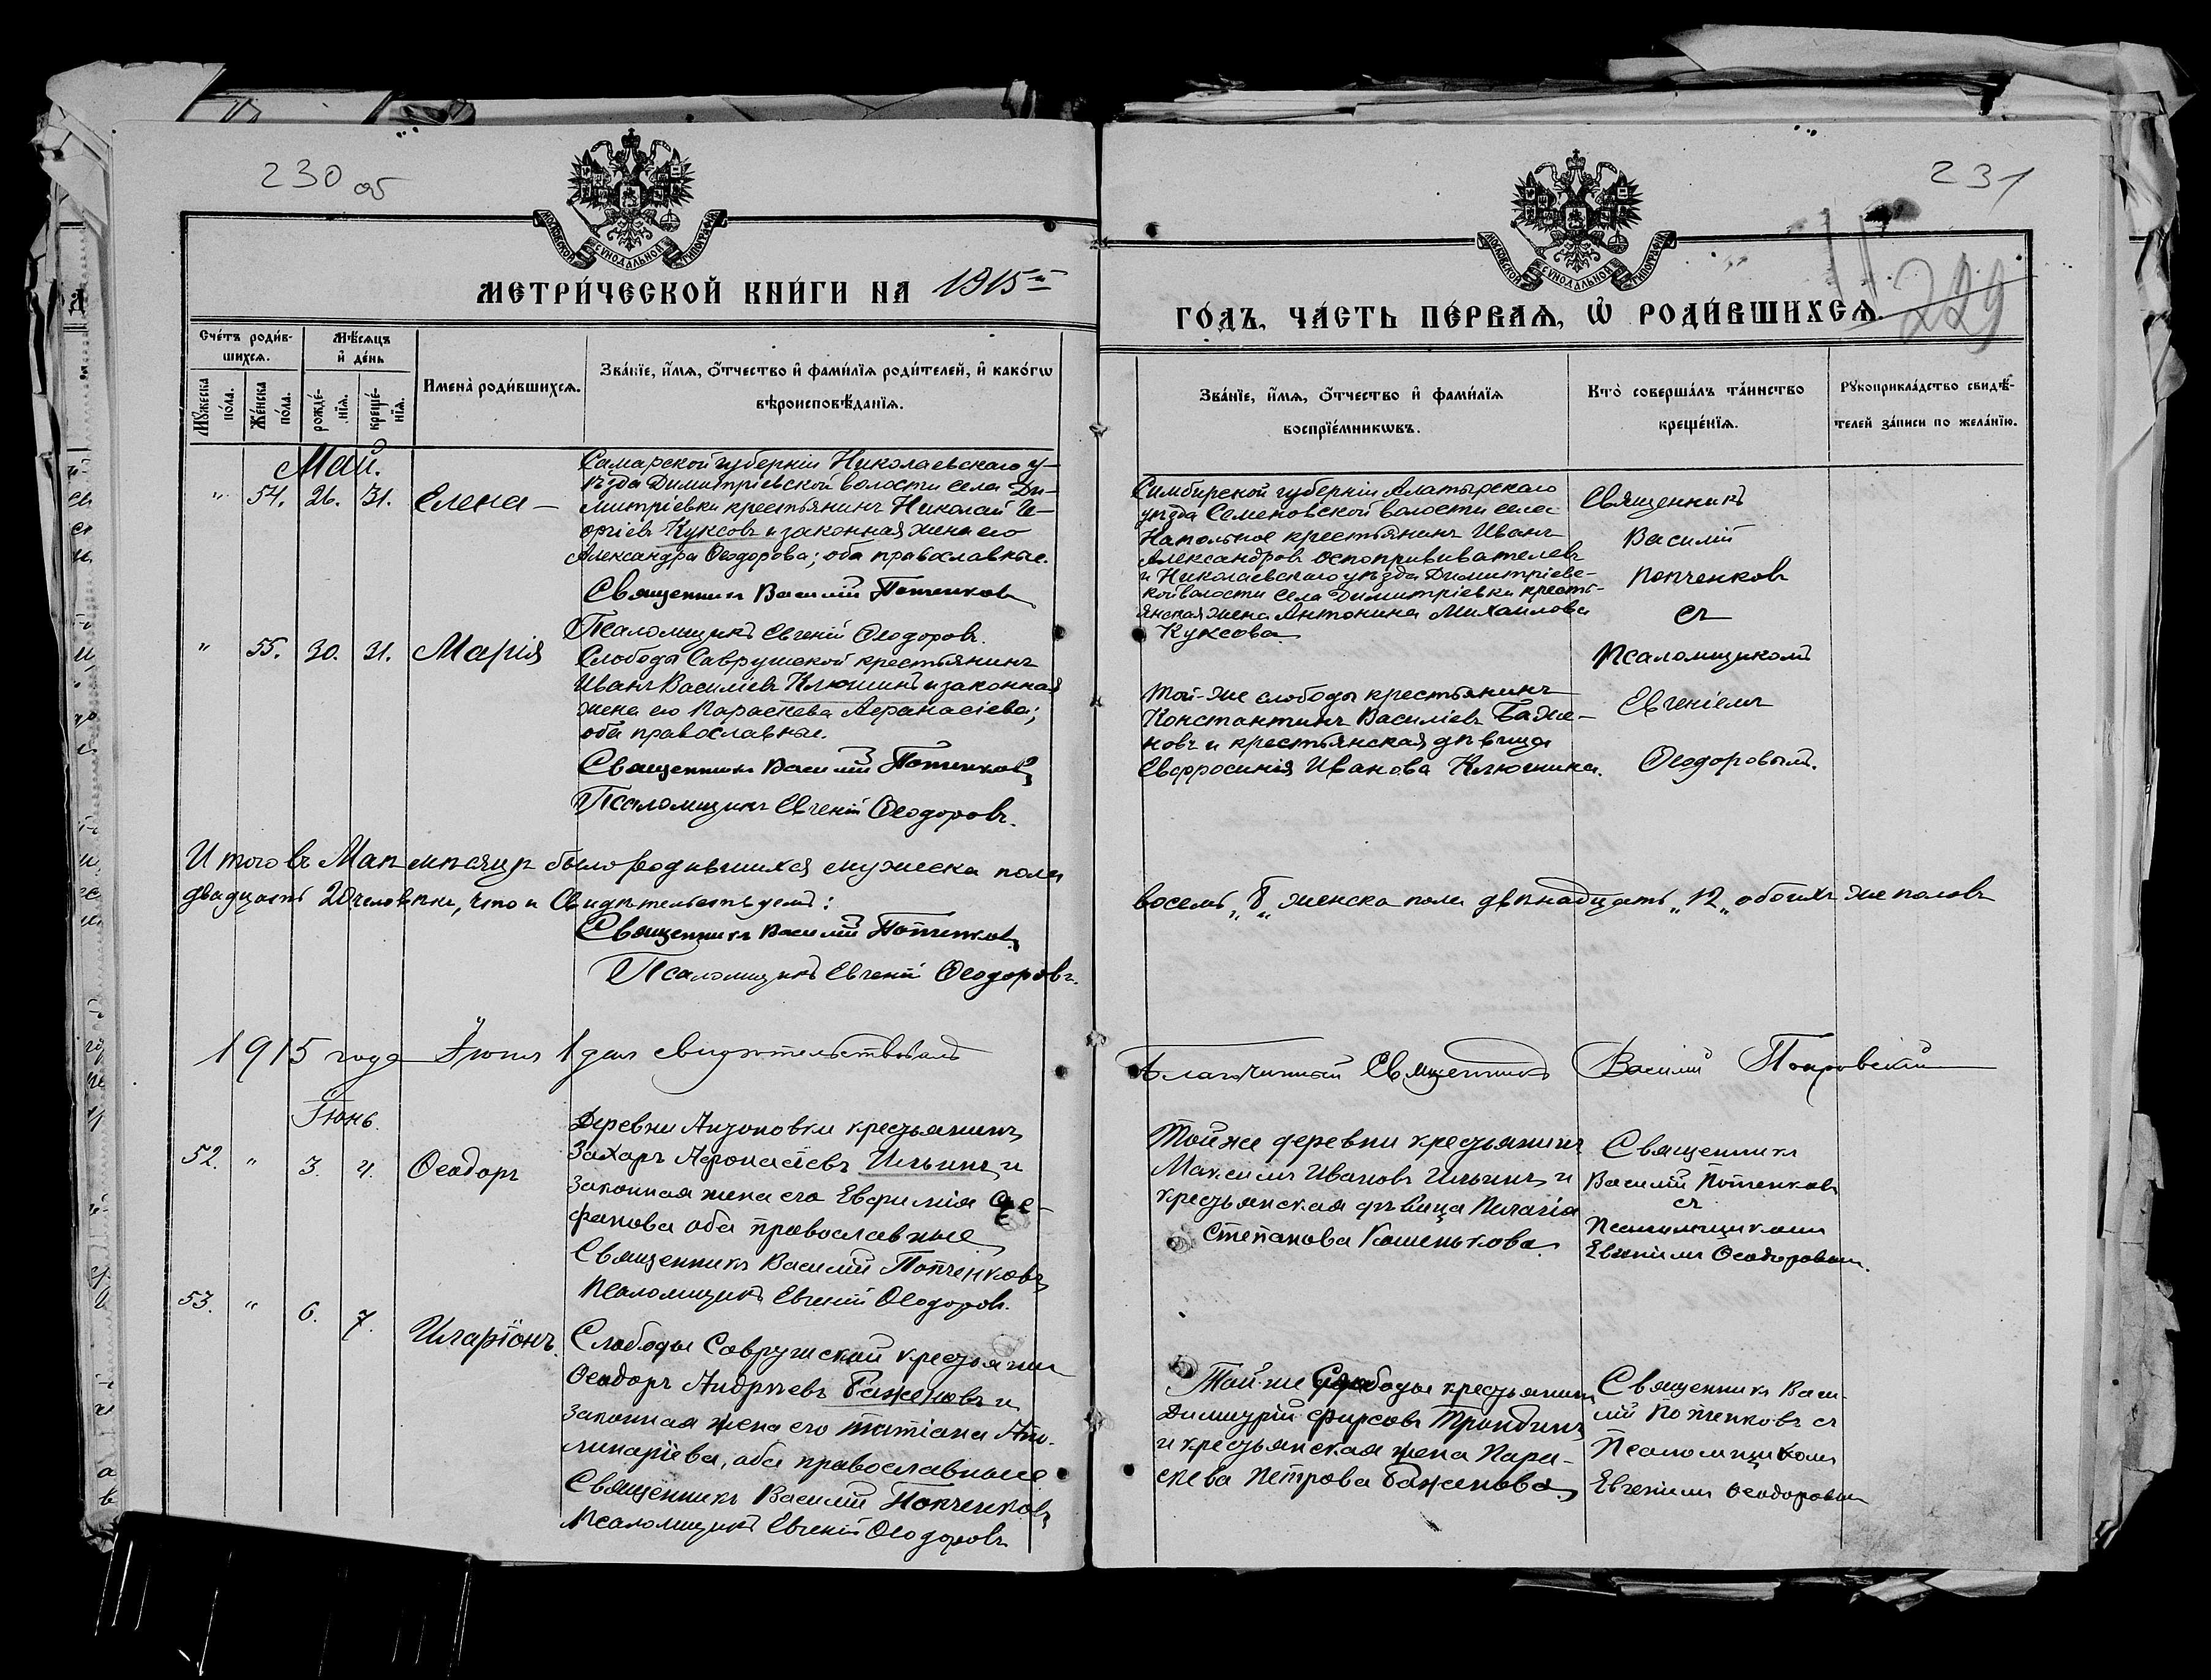 230 об
МОСКОВСКОЙ СѴНОДАЛЬНОЙ ТИПОГРАФІИ
МЕТРИ́ЧЕСКОЙ КНИ́ГИ НА 1915й
Сче́тъ роди́в-
шихсѧ.
Мꙋ́жеска
по́ла.
Же́нска
по́ла.
Мѣ́сѧцъ
и҆ де́нь
рожде́-
нїѧ.
креще́-
нїѧ.
Имена̀ роди́вшихсѧ.
Зва́нїе, и҆́мѧ, ѻ҆́тчество и҆ фами́лїѧ роди́телей, и҆ како́гѡ
вѣроисповѣ́данїѧ.
Май.
" 54. 26. 31. Елена —
Самарской губерніи Николаевскаго у-
ѣзда Димитріевской волости села Ди-
митріевки крестьянинъ Николай Ге-
оргіевъ Куксовъ и законная жена его
Александра Ѳеодорова; оба православные.
Священникъ Василій Попченковъ
Псаломщикъ Евгеній Ѳеодоровъ.
" 55. 30. 31. Марія
Слободы Саврушской крестьянинъ
Иванъ Василіевъ Клюшинъ и законная
жена его Параскева Аѳанасіева;
оба православные.
Священникъ Василій Попченковъ
Псаломщикъ Евгеній Ѳеодоровъ.
Итого въ Маѣ мѣсяцѣ было родившихся мужеска пола
двадцать 20 человѣкъ, что и свидѣтельствуемъ:
Священникъ Василій Попченковъ
Псаломщикъ Евгеній Ѳеодоровъ.
1915 года Іюня 1 дня свидѣтельствовалъ
Іюнь.
52. " 3. 4. Ѳеодоръ
Деревни Антоновки крестьянинъ
Захаръ Аѳонасіевъ Ильинъ и
законная жена его Евфимія Сте-
фанова оба православные
Священникъ Василій Попченковъ
Псаломщикъ Евгеній Ѳеодоровъ.
53. " 6. 7. Иларіонъ.
Слободы Саврушской крестьянин
Ѳеодоръ Андреевъ Баженовъ и
законная жена его Татіана Апо-
линаріева, оба православные
Священникъ Василій Попченковъ
Псаломщикъ Евгеній Ѳеодоровъ
231
229
МОСКОВСКОЙ СѴНОДАЛЬНОЙ ТИПОГРАФІИ
ГО́ДЪ, ЧА́СТЬ ПЕ́РВАѦ, Ѡ҆ РОДИ́ВШИХСѦ.
Зва́нїе, и҆́мѧ, ѻ҆́тчество и҆ фами́лїѧ
воспрїе́мникѡвъ.
Кто̀ соверша́лъ та́инство
креще́нїѧ.
Рꙋкоприкла́дство свидѣ́-
телей за́писи по жела́нїю.
Симбирской губерніи Алатырскаго
уѣзда Семеновской волости села
Напольное крестьянинъ Иванъ
Александровъ Оспопрививателевъ
и Николаевскаго уѣзда Димитріевс-
кой волости села Димитріевки кресть-
янская жена Антонина Михаилова
Куксова.
Священникъ
Василій
Попченковъ
съ
Псаломщикомъ
Евгеніемъ
Ѳеодоровымъ.
Той-же слободы крестьянинъ
Константинъ Василіевъ Баже-
новъ и крестьянская дѣвица
Евфросинія Иванова Клюшина.
восемь „8„ женска пола двѣнадцать „12„ обоихъ же половъ
Благочинный Священникъ Василій Покровскій
Той же деревни крестьянинъ
Максимъ Ивановъ Ильинъ и
крестьянская дѣвица Пелагія
Степанова Кашенькова.
Священникъ
Василій Попченковъ
съ
Псаломщикомъ
Евгеніемъ Ѳеодоровым.
Той-же Слободы крестьянинъ
Димитрій Фирсовъ Трондинъ
и крестьянская жена Пара-
скева Петрова Баженова.
Священникъ Васи-
лій Попченковъ съ
Псаломщикомъ
Евгеніемъ Ѳеодоровым